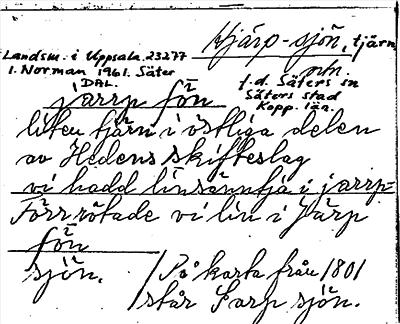 Hjärp-sjön, tjärn
Landsm. i Uppsala 23277
o/n.
1. Norman 1961. Säter
f.d. Säters sn
DAL.
Säters stad
Kopp. län.
jarrp fön
liten tjärn i östliga delen
av Hedens skifteslag
vi hadd linsänntja i jarrp=
Förr rötade vi lin i Järp
fön
sjön.
/På karta från 1801
står Jarp sjön.